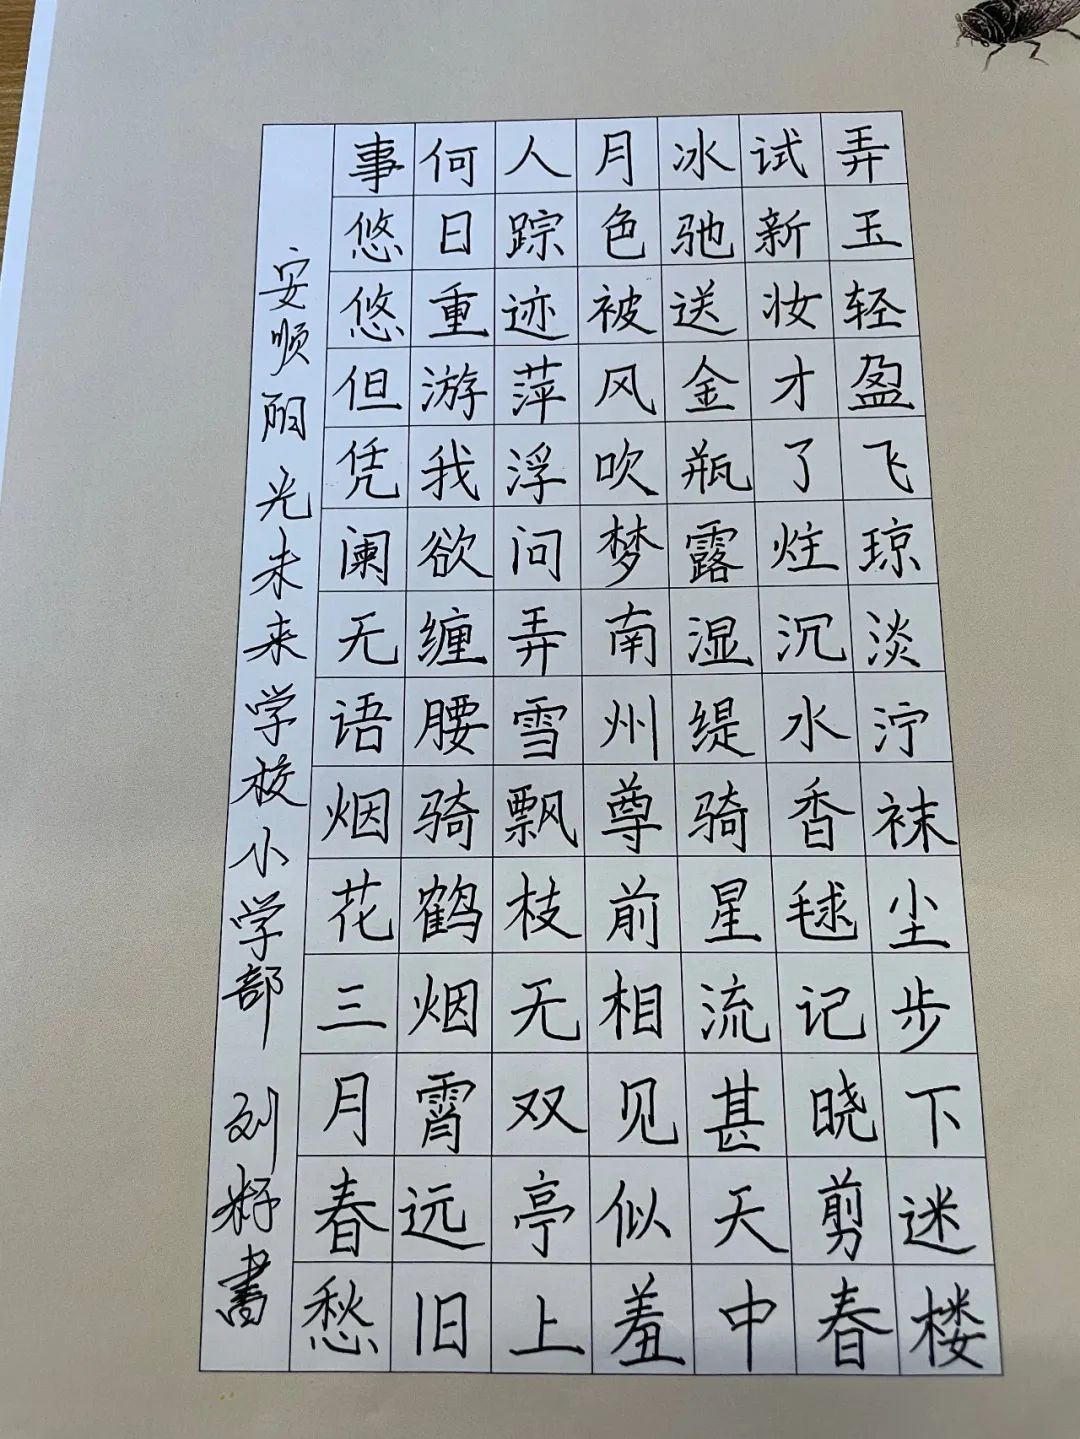 弄玉轻盈飞琼淡泞袜尘步下迷楼
试新妆才了炷沉水香毬记晓剪春
冰驰送金瓶露湿缇骑星流甚天中
月色被风吹梦南州尊前相见似羞
人踪迹萍浮问弄雪飘枝无双亭上
何日重游我欲缠腰骑鹤烟霄远旧
事悠悠但凭阑无语烟花三月春愁
安顺阳光未来学校小学部 刘籽書